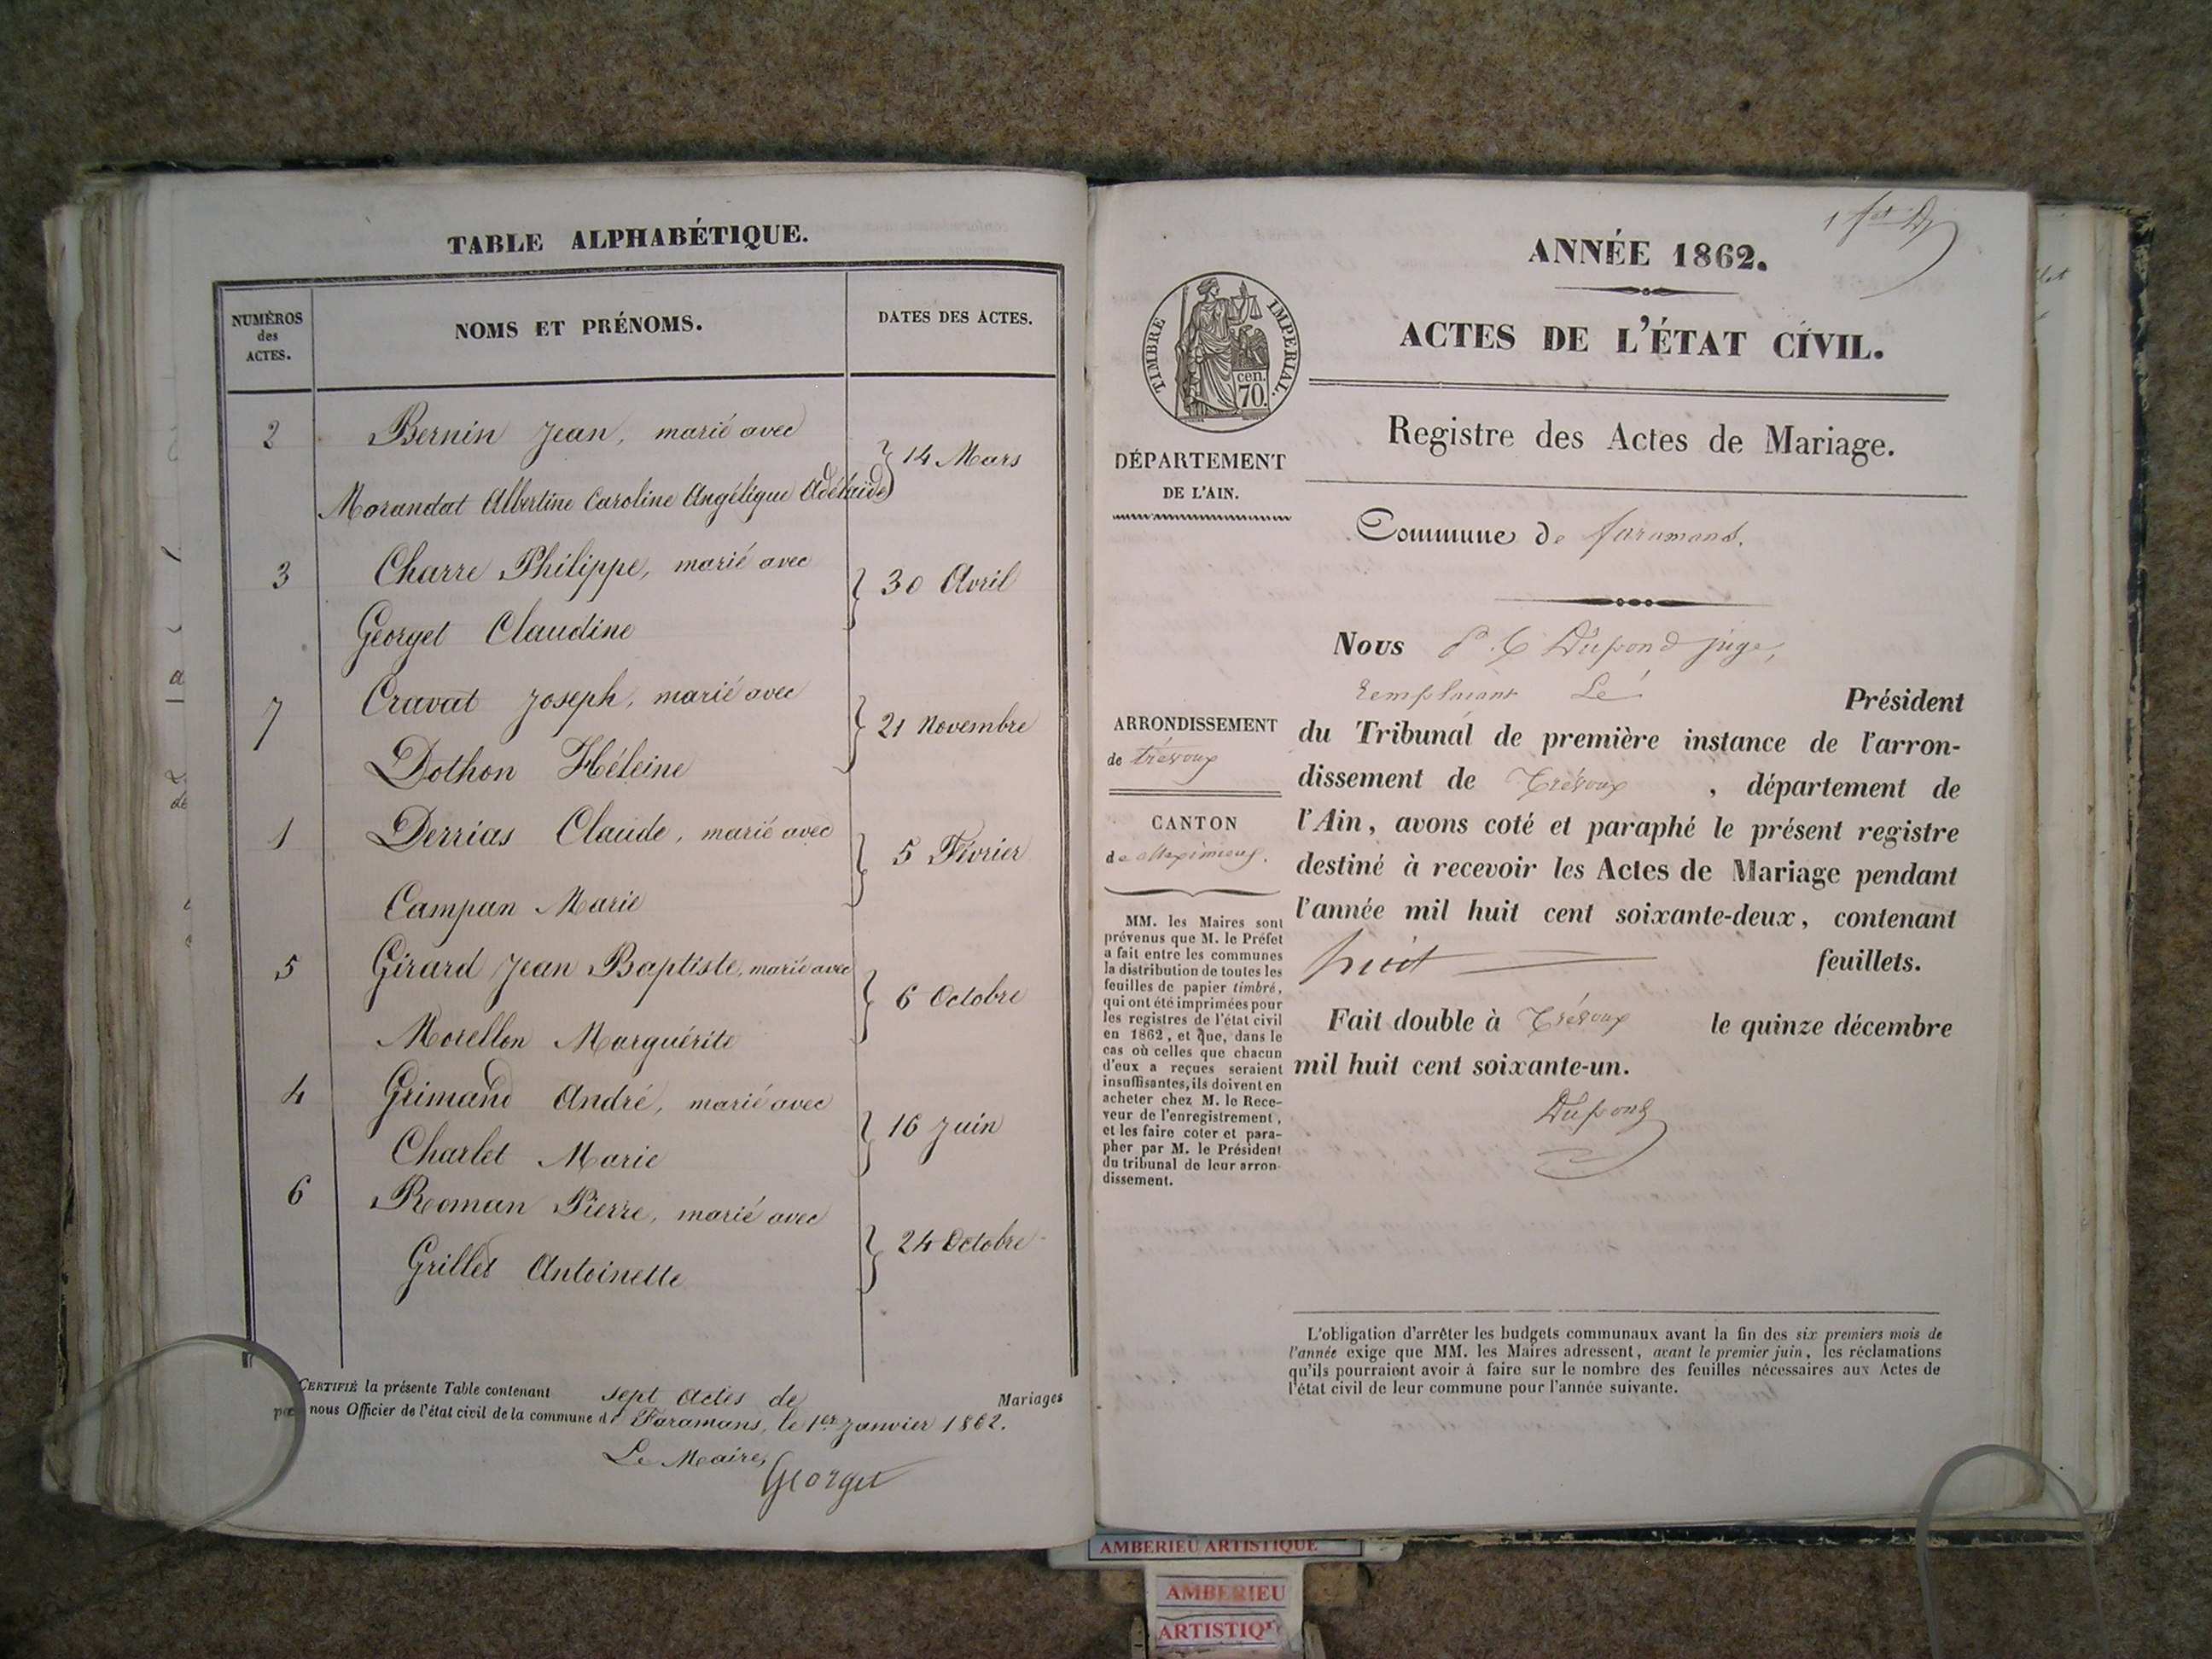 TABLE ALPHABÉTIQUE.
NUMÉROS
des
ACTES.
NOMS ET PRÉNOMS.
DATES DES ACTES.
2 Bernin Jean, marié avec
14 Mars
Morandat Albertine Caroline Angélique Adélaïde
3 Charre Philippe, marié avec
30 Avril
Georget Claudine
7 Cravat Joseph, marié avec
21 Novembre
Dothon Héleine
1 Derrias Claude, marié avec
5 Février
Campan Marie
5 Girard Jean Baptiste, marié avec
6 Octobre
Morellon Marguérite
4 Grimand André, marié avec
16 Juin
Charlet Marie
6 Roman Pierre, marié avec
24 Octobre
Grillet Antoinette
CERTIFIÉ la présente Table contenant sept actes de Mariages
par nous Officier de l'état civil de la commune de Faramans, le 1er Janvier 1862.
Le Maire,
Georget
ANNÉE 1862.
ACTES DE L'ÉTAT CIVIL.
TIMBRE IMPÉRIAL.
cen.
70.
Registre des Actes de Mariage.
DÉPARTEMENT
DE L'AIN.
Commune de Faramans.
Nous Dupond juge,
remplaçant Le Président
du Tribunal de première instance de l'arron-
dissement de Trévoux, département de
l'Ain, avons coté et paraphé le présent registre
destiné à recevoir les Actes de Mariage pendant
l'année mil huit cent soixante-deux, contenant
huit feuillets.
Fait double à Trévoux le quinze décembre
mil huit cent soixante-un.
Dupond
ARRONDISSEMENT
de Trévoux
CANTON
de Meximieux.
MM. les Maires sont
prévenus que M. le Préfet
a fait entre les communes
la distribution de toutes les
feuilles de papier timbré,
qui ont été imprimées pour
les registres de l'état civil
en 1862, et que, dans le
cas où celles que chacun
d'eux a reçues seraient
insuffisantes, ils doivent en
acheter chez M. le Rece-
veur de l'enregistrement,
et les faire coter et para-
pher par M. le Président
du tribunal de leur arron-
dissement.
L'obligation d'arrêter les budgets communaux avant la fin des six premiers mois de
l'année exige que MM. les Maires adressent, avant le premier juin, les réclamations
qu'ils pourraient avoir à faire sur le nombre des feuilles nécessaires aux Actes de
l'état civil de leur commune pour l'année suivante.
AMBERIEU ARTISTIQUE
AMBERIEU
ARTISTIQ